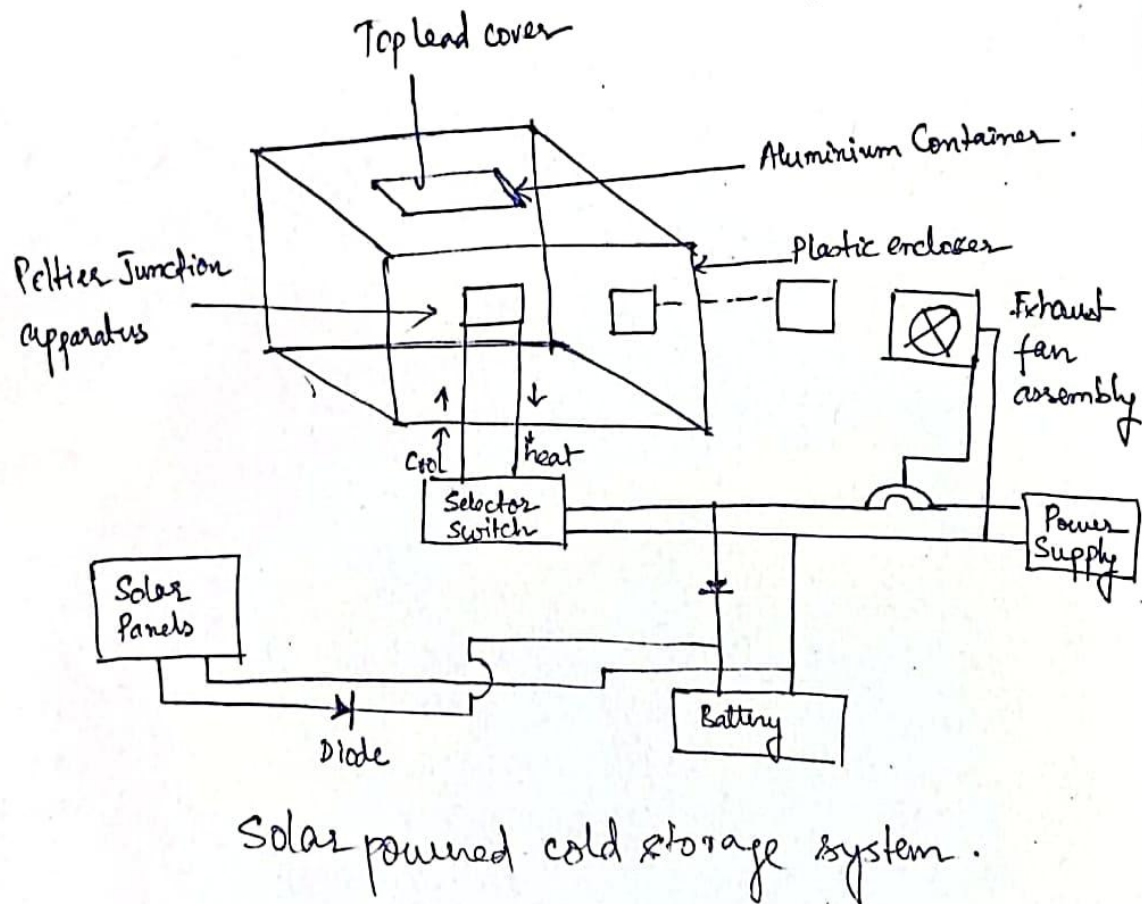 Top lead cover
Aluminium Container.
Plastic encloser
Peltier Junction
apparatus
Exhaust
fan
assembly
Cool
heat
Selector
Switch
Power
Supply
Solar
Panels
Diode
Battery
Solar powered cold storage system.